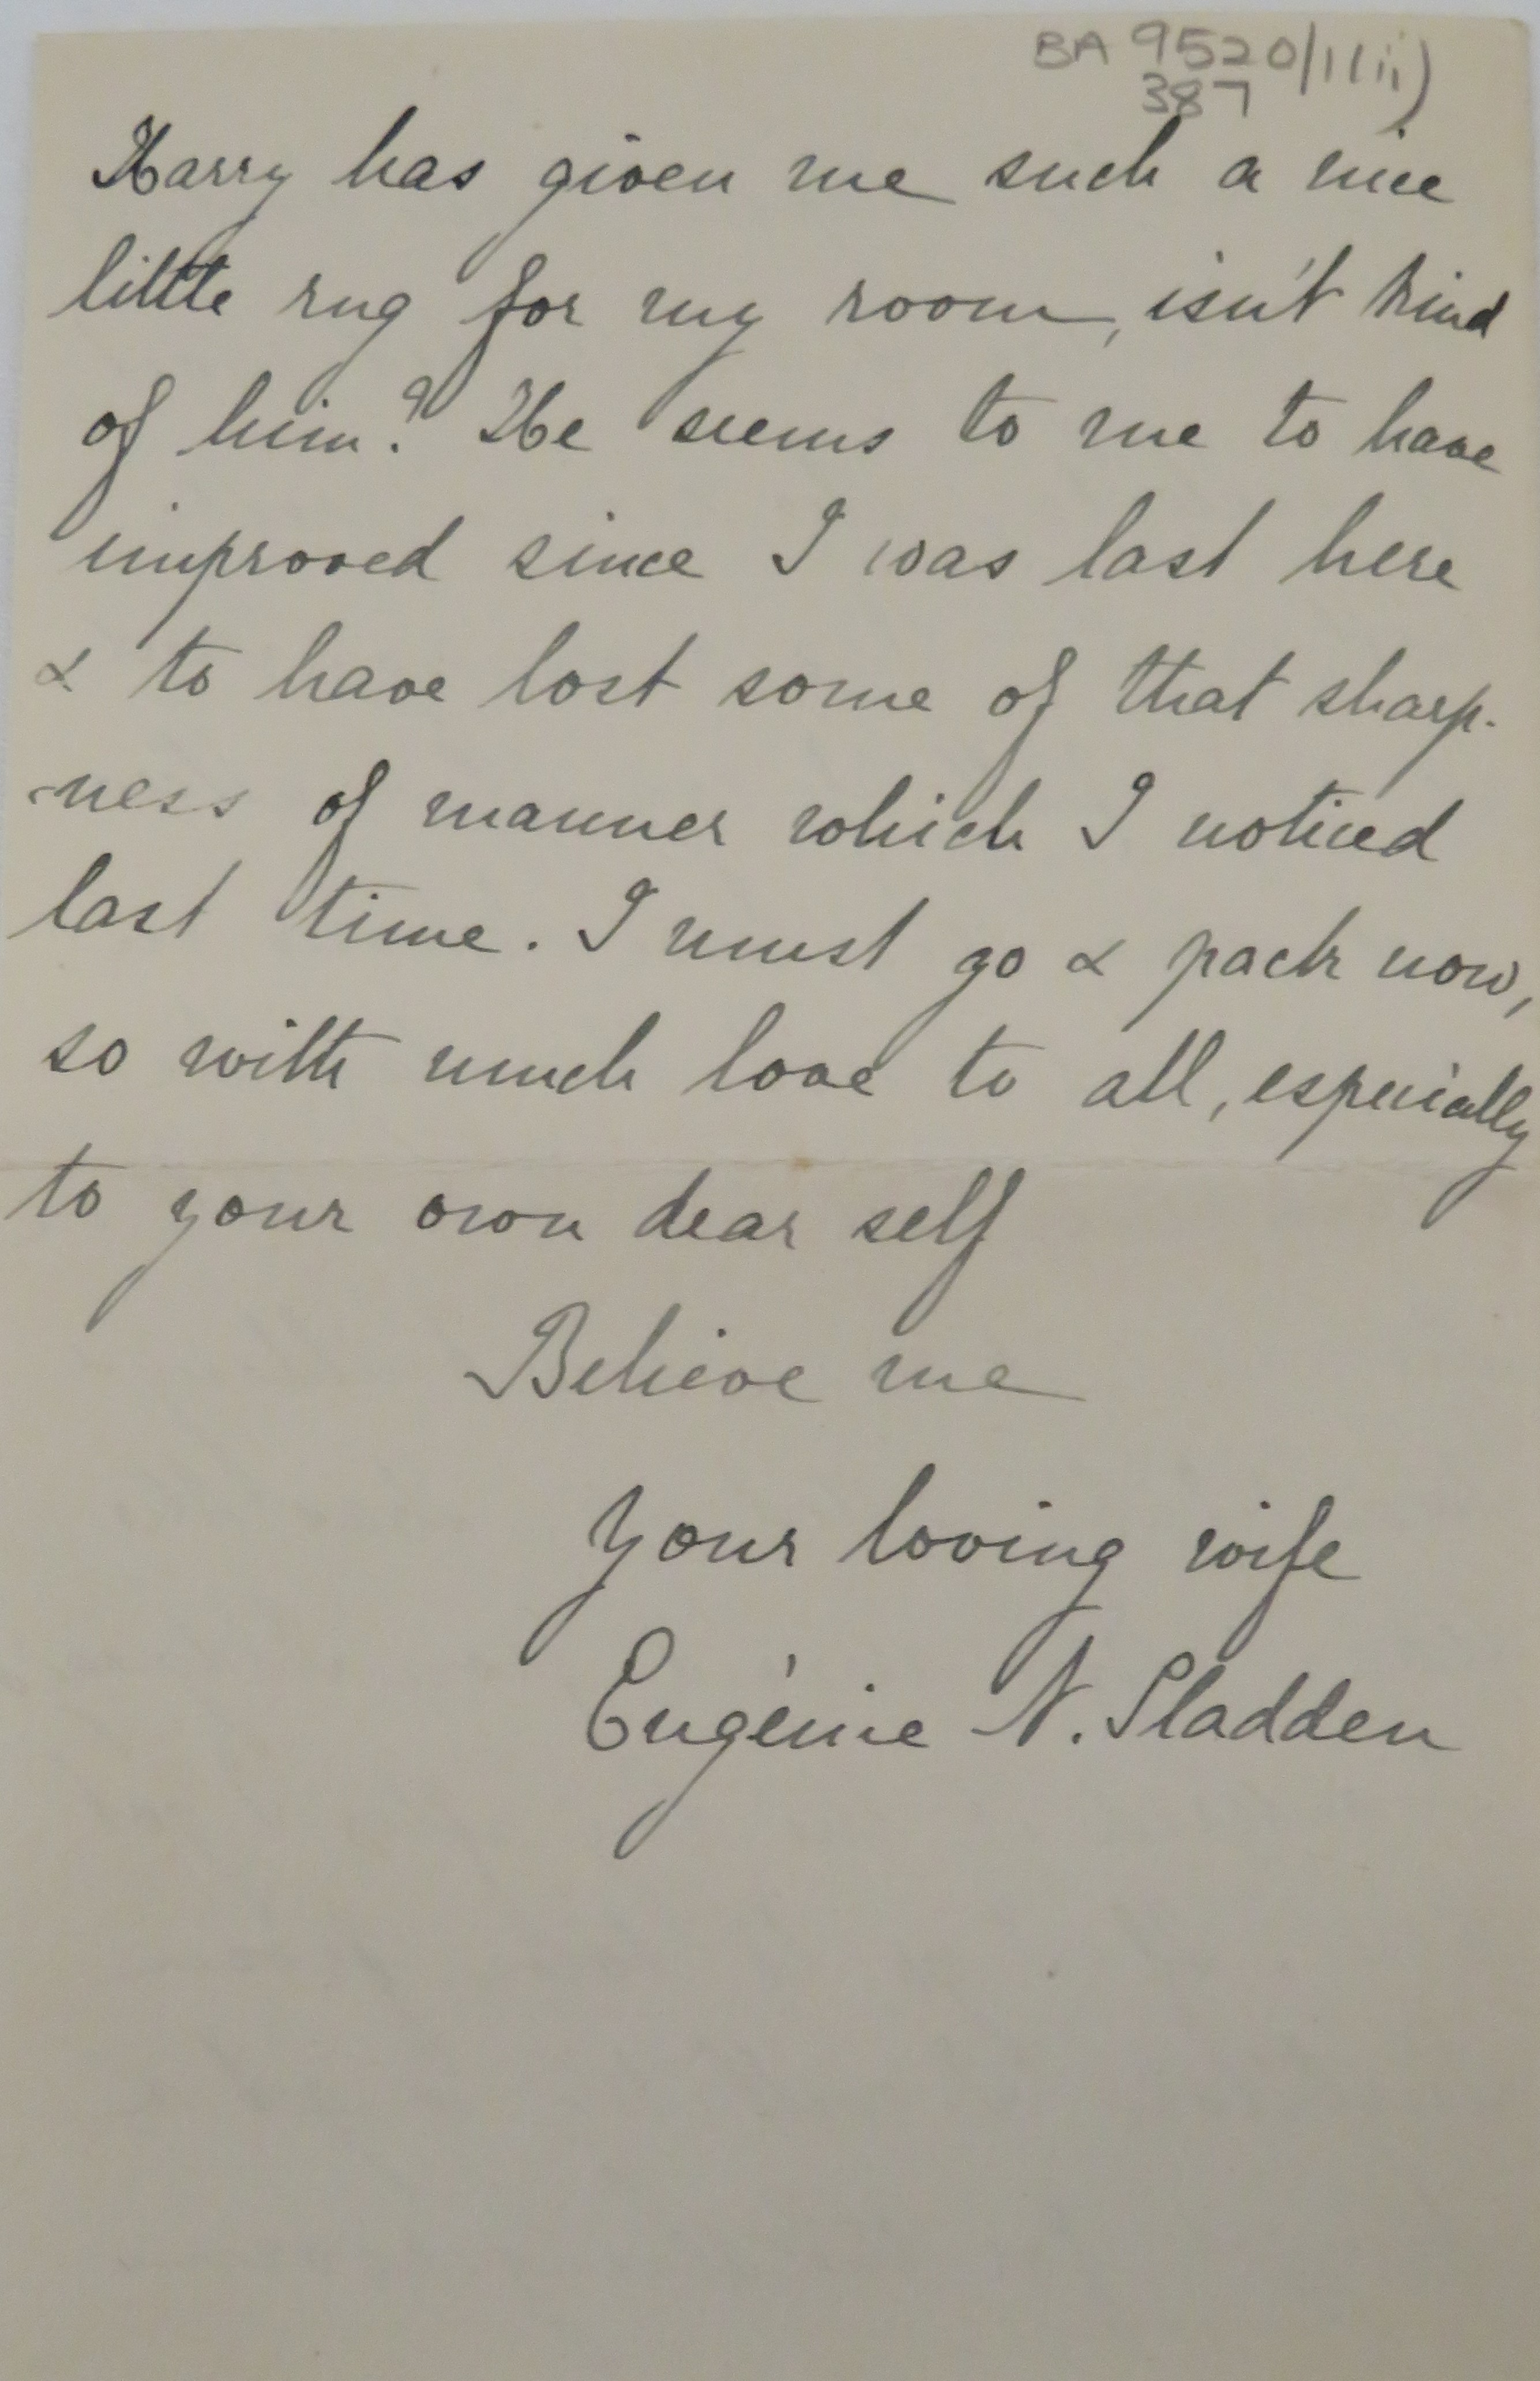 BA 9520/1(ii)
387
Harry has given me such a nice
little rug for my room, isn't kind
of him? He seems to me to have
improved since I was last here
& to have lost some of that sharp-
-ness of manner which I noticed
last time. I must go & pack now,
so with much love to all, especially
to your own dear self
Believe me
Your loving wife
Eugénie N. Sladden